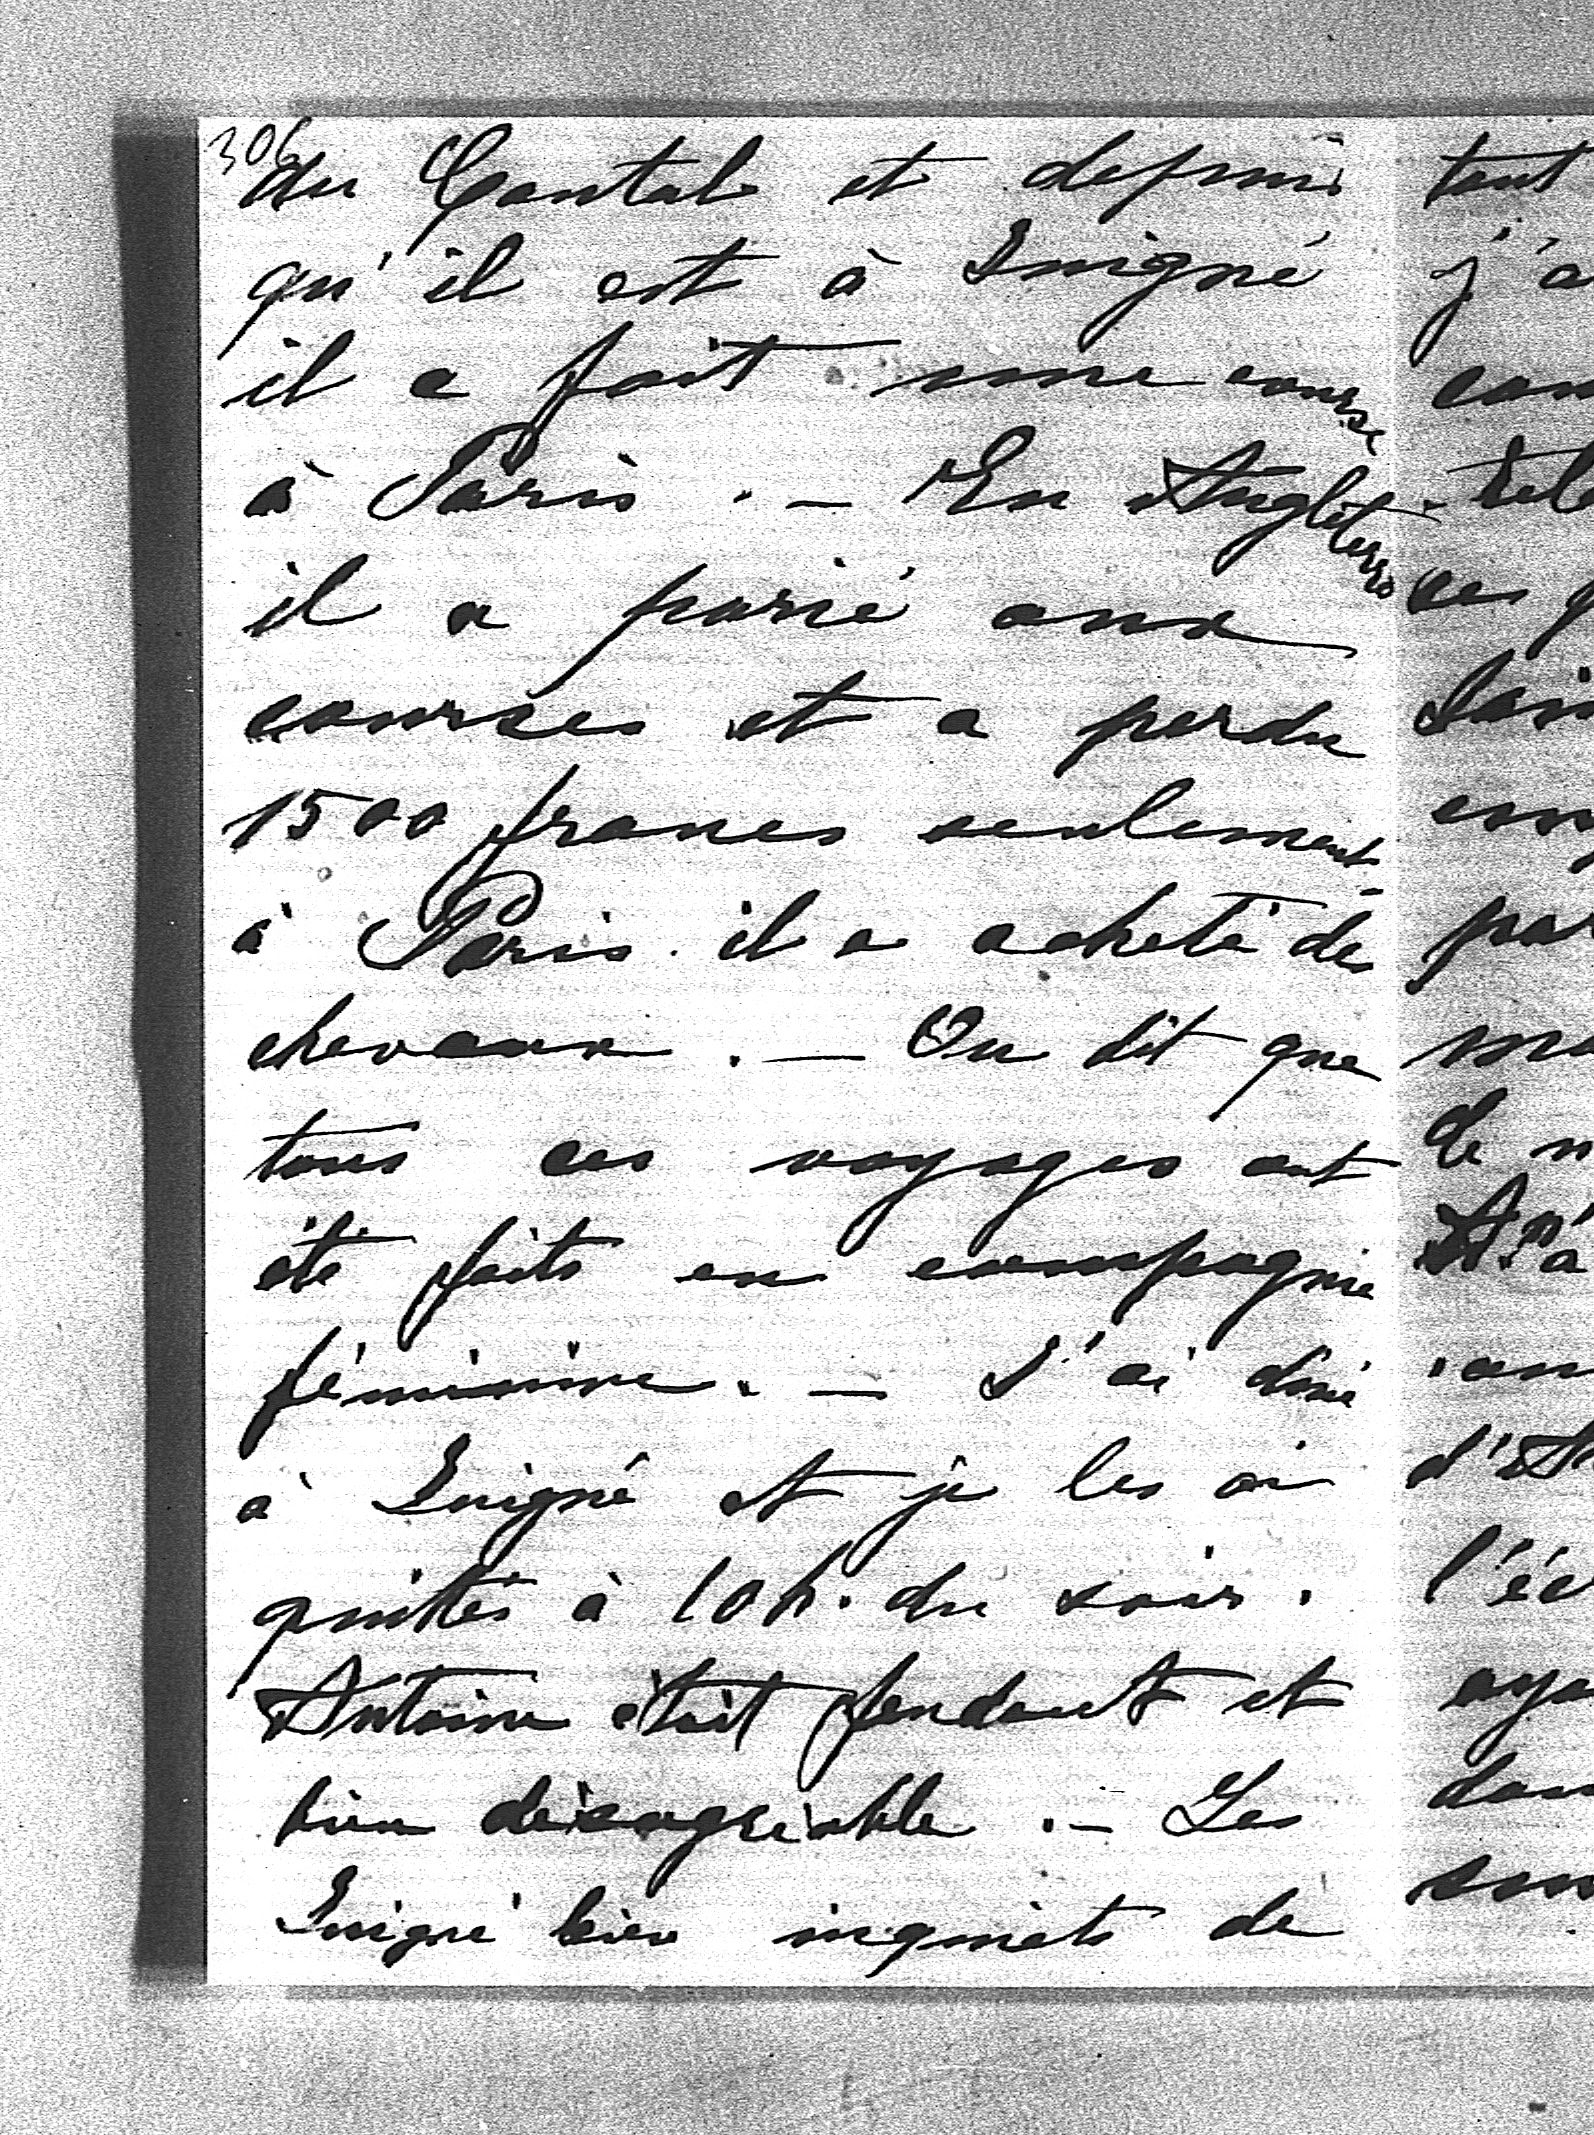 306
du Cantal et depuis
qu'il est à Luigné
il a fait une course
à Paris. — En Angleterre
il a parié aux
courses et a perdu
1500 francs seulement
à Paris il a acheté des
chevaux. — On dit que
tous ces voyages ont
été faits en compagnie
féminine. — J'ai diné
à Luigné et je les ai
quittés à 10 h. du soir.
Antoine était fendant et
bien désagréable. — Les
Luigné bien inquiets de
tout
j'a
ces
l'éc